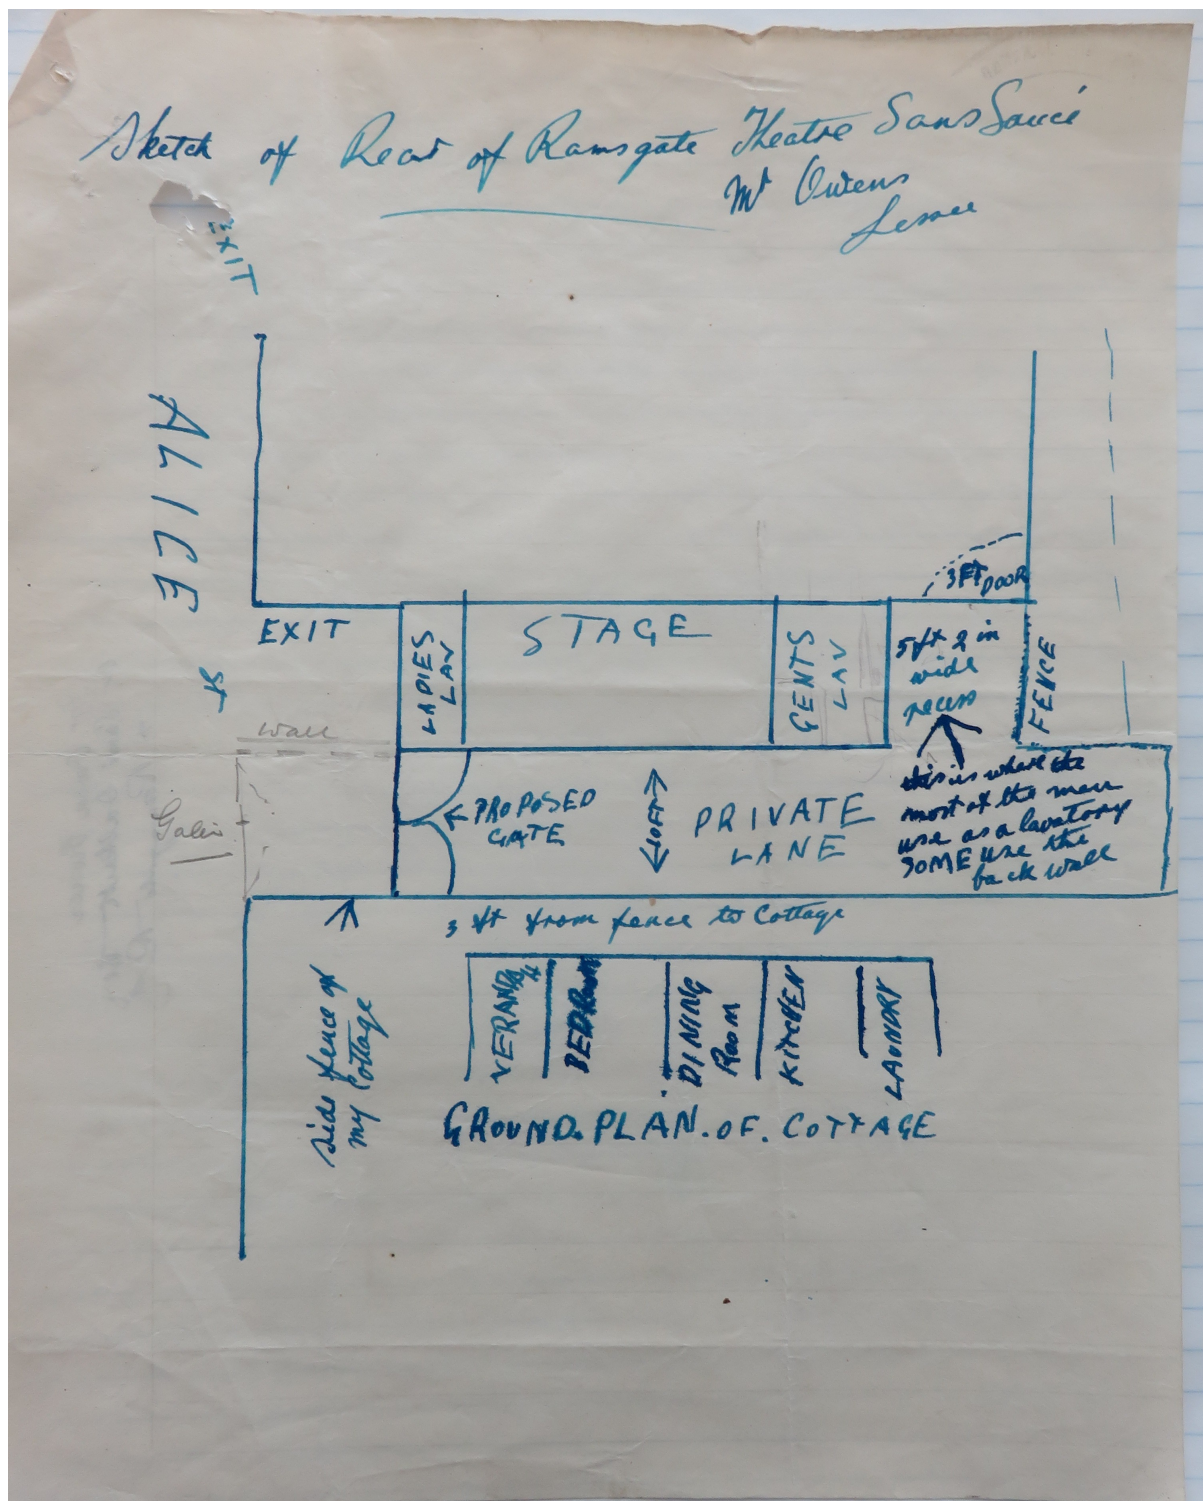 Sketch of Rear of Ramsgate Theatre Sans Souci
Mr Owens
Lessee
EXIT
ALICE
St
3FT DOOR
EXIT
LADIES
LAV
STAGE
GENTS
LAV
5ft 2 in
wide
recess
FENCE
wall
Gates
PROPOSED
GATE
10FT
PRIVATE
LANE
this is where the
most of the men
use as a lavatory
SOME use the
back wall
3 ft from fence to Cottage
Side fence of
my Cottage
VERANDAH
BEDROOM
DINING
ROOM
KITCHEN
LAUNDRY
GROUND.PLAN.OF.COTTAGE